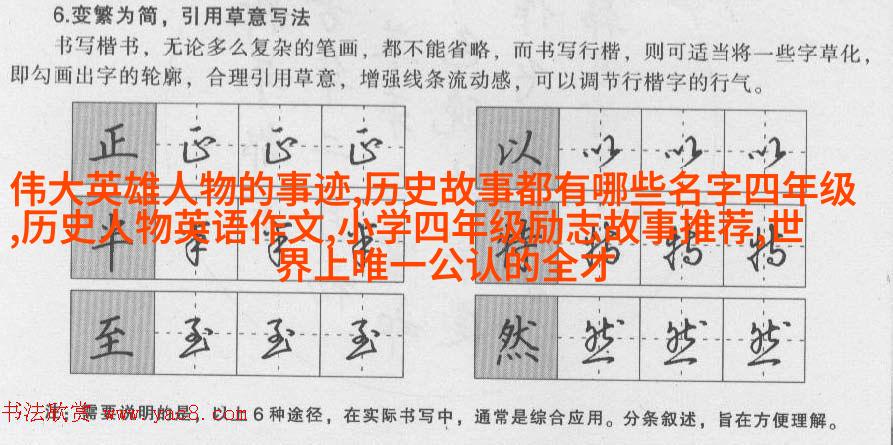 6.变繁为简，引用草意写法
书写楷书，无论多么复杂的笔画，都不能省略，而书写行楷，则可适当将一些字草化，
即勾画出字的轮廓，合理引用草意，增强线条流动感，可以调节行楷字的行气。
正 正 正 正 以 以 以 以
伟大英雄人物的事迹,历史故事都有哪些名字四年级
,历史人物英语作文,小学四年级励志故事推荐,世
界上唯一公认的全才
半 半 半 半 特 特 特 特
至 至 至 至 然 然 然 然
注：需要说明的是，以上6种途径，在实际书写中，通常是综合应用。分条叙述，旨在方便理解。
书法欣赏 www.yac8.com